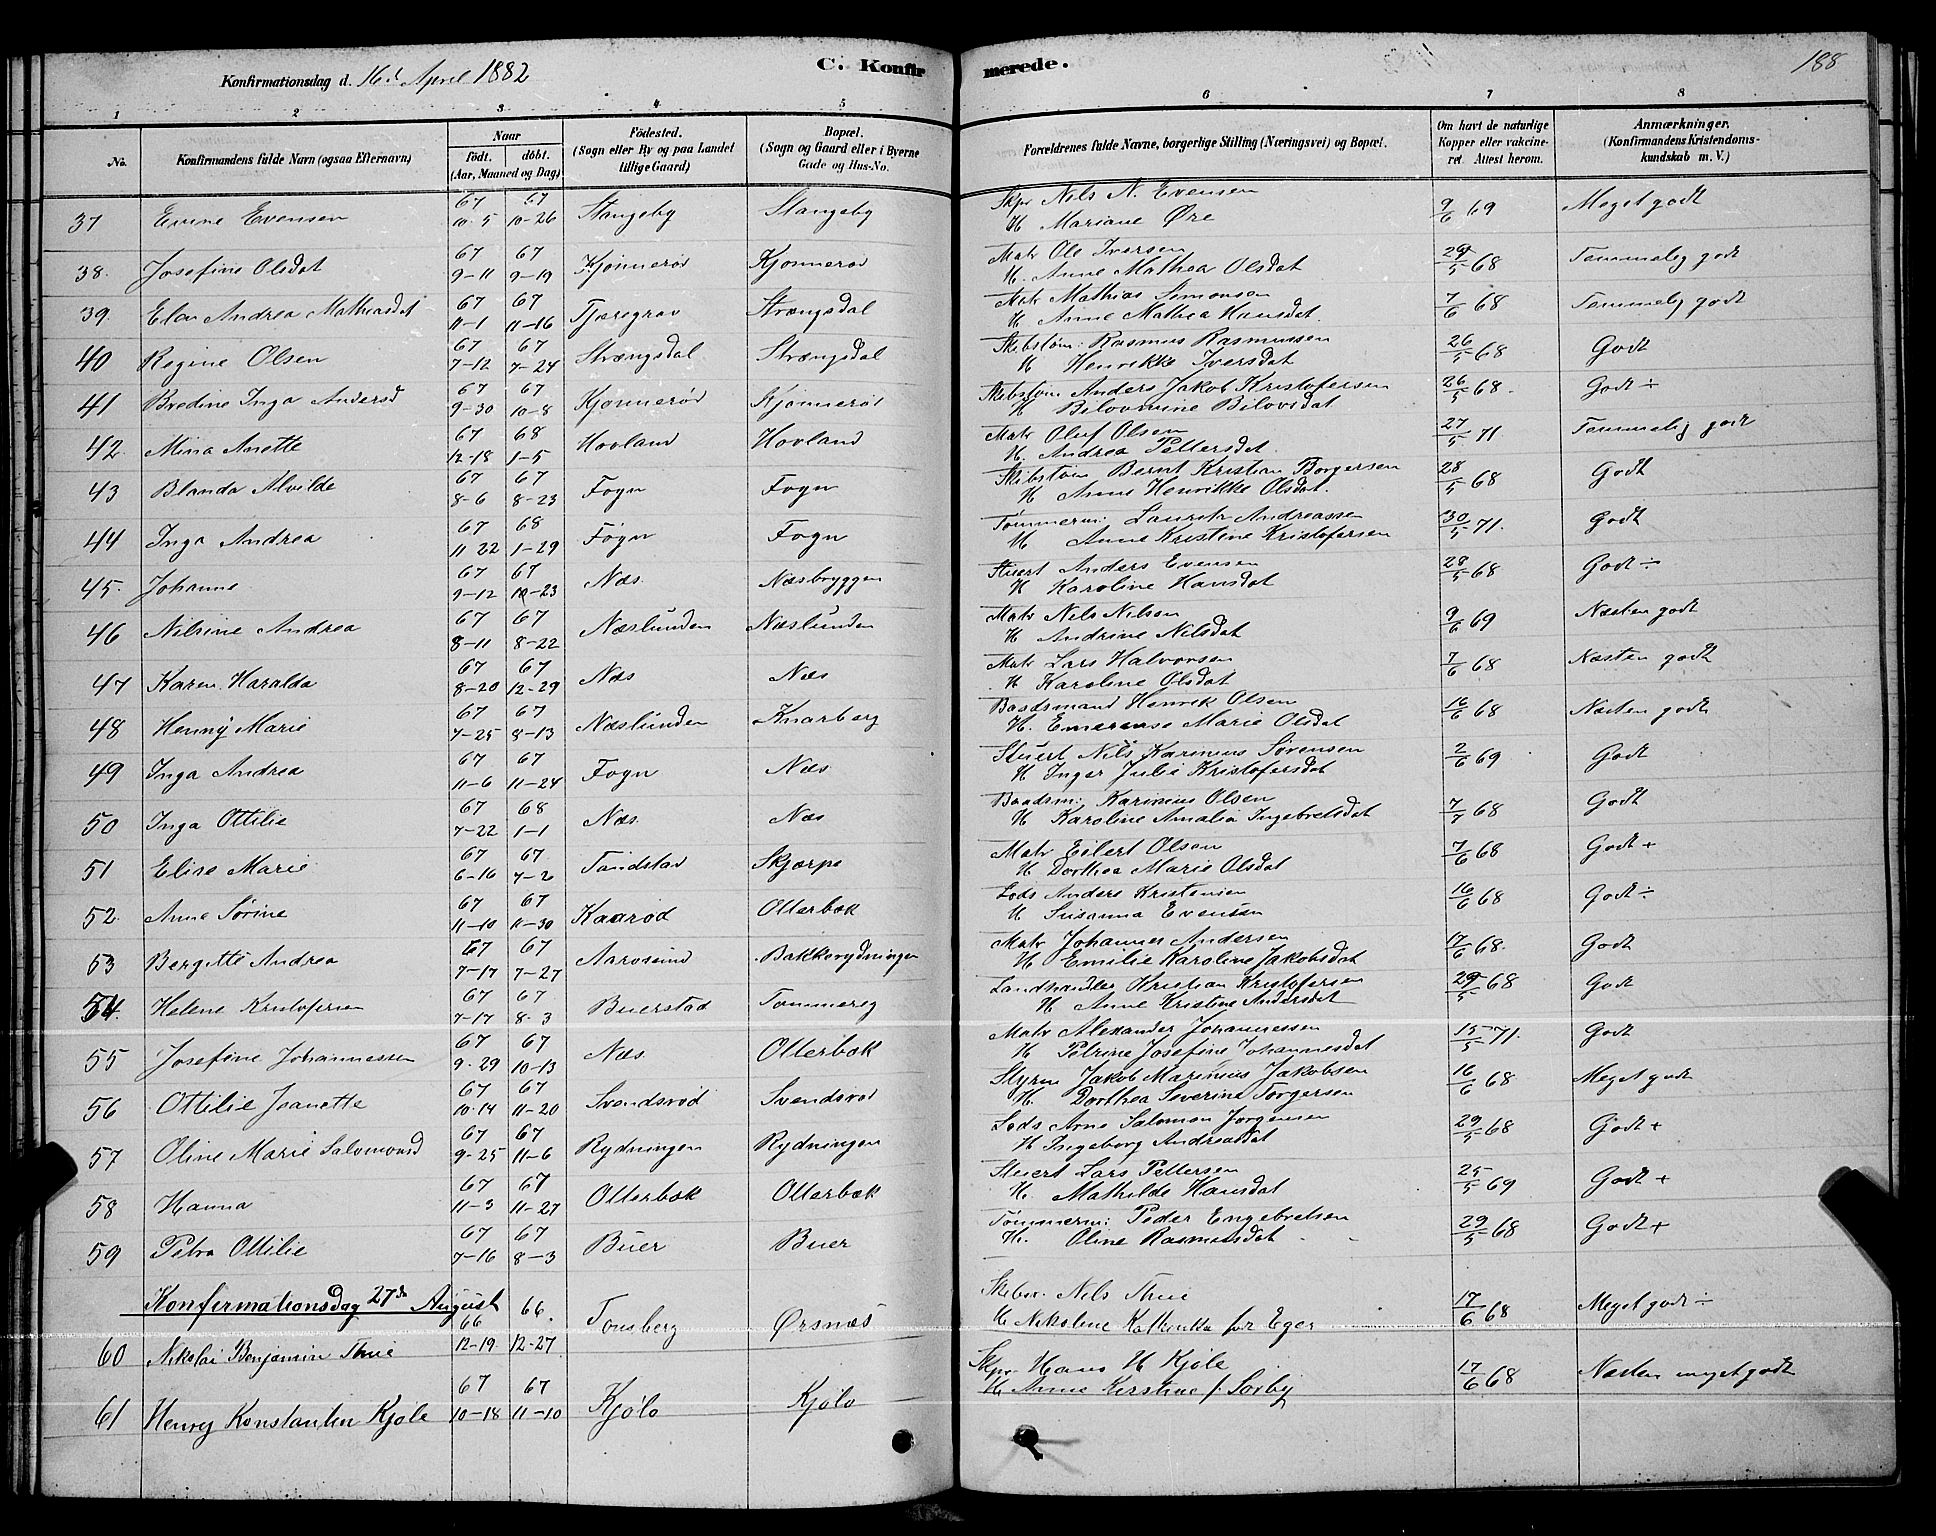 Konfirmationsdag d. 16d April 1882
C. Konfirmerede.
188
1 2 3 4 5 6 7 8
No. Konfirmandens fulde Navn (ogsaa Efternavn) Naar födt. döbt. (Aar, Maaned og Dag) Födested. (Sogn eller By og paa Landet tillige Gaard) Bopæl. (Sogn og Gaard eller i Byerne Gade og Hus-No. Forældrenes fulde Navne, borgerlige Stilling (Næringsvei) og Bopæl. Om havt de naturlige Kopper eller vakcineret. Attest herom. Anmærkninger, (Konfirmandens Kristendomskundskab m. V.)
37 Emine Evensen 67 10-5 67 10-26 Stangeby Stangeby Skpr Nils N. Evensen H Mariane Øre 9/6 69 Meget godt
38. Josefine Olsdat 67 9-11 67 9-19 Kjønnerød Kjønnerød Matr Ole Iversen H. Anne Mathea Olsdat 29/5 68 Temmelig godt
39. Ela Andrea Mathiasdat 67 11-1 67 11-16 Tjæregrav Strængsdal Matr Mathias Simonsen H Anne Mathea Hansdat. 7/6 68 Temmelig godt
40 Regine Olsen 67 7-12 67 7-24 Strængsdal Strængsdal Skibstøm: Rasmus Rasmussen H Henrikke Iversdat 26/5 68 Godt
41 Bredine Inga Andersd 67 9-30 67 10-8 Kjønnerød Kjønnerød Skibstøm Anders Jakob Kristofersen H Bilovmine Bilovsdat 26/5 68. Godt ÷
42. Mina Anette 67 12-18 68 1-5 Hovland Hovland Matr Oluf Olsen H. Andrea Pettersdat. 27/5 71. Temmelig godt
43 Blanda Alvilde 67 8-6 67 8-23 Fogn Fogn Skibstøm Bernt Kristian Borgersen H Anne Henrikke Olsdat. 28/5 68 Godt
44 Inga Andrea 67 11-22 68 1-29 Fogn Fogn Tømmerm: Lauritz Andreassen H Anne Kristine Kristofersen 30/5 71. Godt
45. Johanne 67 9-12 67 10-23 Næs. Næsbryggen Stuert Anders Evensen H Karoline Hansdat 28/5 68 Godt ÷
46 Nilsine Andrea 67 8-11 67 8-22 Næslunden Næslunden Matr Nils Nilsen H Andrine Nilsdat 9/6 69 Næsten godt
47 Karen Haralda 67 8-20 67 12-29 Næs Næs Matr Lars Halvorsen H Karoline Olsdat 7/6 68 Næsten godt
48 Henny Marie 67 7-25 67 8-13 Næslunden Knarberg Baadsmand Henrik Olsen H. Emerense Marie Olsdat 16/6 68 Næsten godt
49 Inga Andrea 67 11-6 67 11-24 Fogn Næs Stuert Nils Karinius Sørensen H Inger Julie Kristofersdat 2/6 69 Godt
50 Inga Ottilie 67 7-22 68 1-1 Næs. Næs Baadsm: Karinius Olsen H Karoline Amalia Ingebretsdat 7/7 68 Godt
51 Elise Marie 67 6-16 67 7-2 Tandstad Skjærpe Matr Eilert Olsen H Dorthea Marie Olsdat 7/6 68 Godt +
52. Anne Sørine 67 11-10 67 11-30 Kaarød Otterbæk Lods Anders Kristensen H Susanna Evensen 16/6 68 Godt ÷
53 Bergitte Andrea 67 7-17 67 7-27 Aarøsund Bakkerydningen Matr Johannes Andersen H Emilie Karoline Jakobsdat 17/6 68. Godt
54. Helene Kristofersen 67 7-17 67 8-3 Buerstad Tømmereg Landhandler Kristian Kristofersen H Anne Kristine Andersdat 29/5 68 Godt
55 Josefine Johannessen 67 9-29 67 10-13 Næs. Otterbæk Matr Alexander Johannessen H Petrine Josefine Johannesdat 15/5 71. Godt
56 Ottilie Jeanette 67 10-14 67 11-20 Svendsrød Svendsrød Styrm Jakob Marinius Jakobsen H. Dorthea Severine Torgersen 16/6 68 Meget godt
57 Oline Marie Salomonsd 67 9-25 67 11-6 Rydningen Rydningen Lods Arne Salomon Jørgensen H Ingeborg Andreasdat 29/5 68 Godt +
58 Hanna 67 11-3 67 11-27 Otterbæk Otterbæk Stuert Lars Pettersen H. Mathilde Hansdat 25/5 69 Godt +
59 Petra Ottilie 67 7-16 67 8-3 Buer Buer Tømmerm: Peder Engebretsen H. Oline Rasmusdat 29/5 68 Godt +
Konfirmationsdag 27de August
60 Nikolai Benjamin Thue 66 12-19 66. 12-27 Tønsberg Ørsnæs Skibsr. Nils Thue H Nikoline Kathinka før Eger 17/6 68 Meget godt ÷
61 Henry Konstantin Kjøle 67 10-18 67 11-10 Kjølø Kjølø Skpr Hans H Kjøle H Anne Kirstine f. Sørby 17/6 68 Næsten meget godt